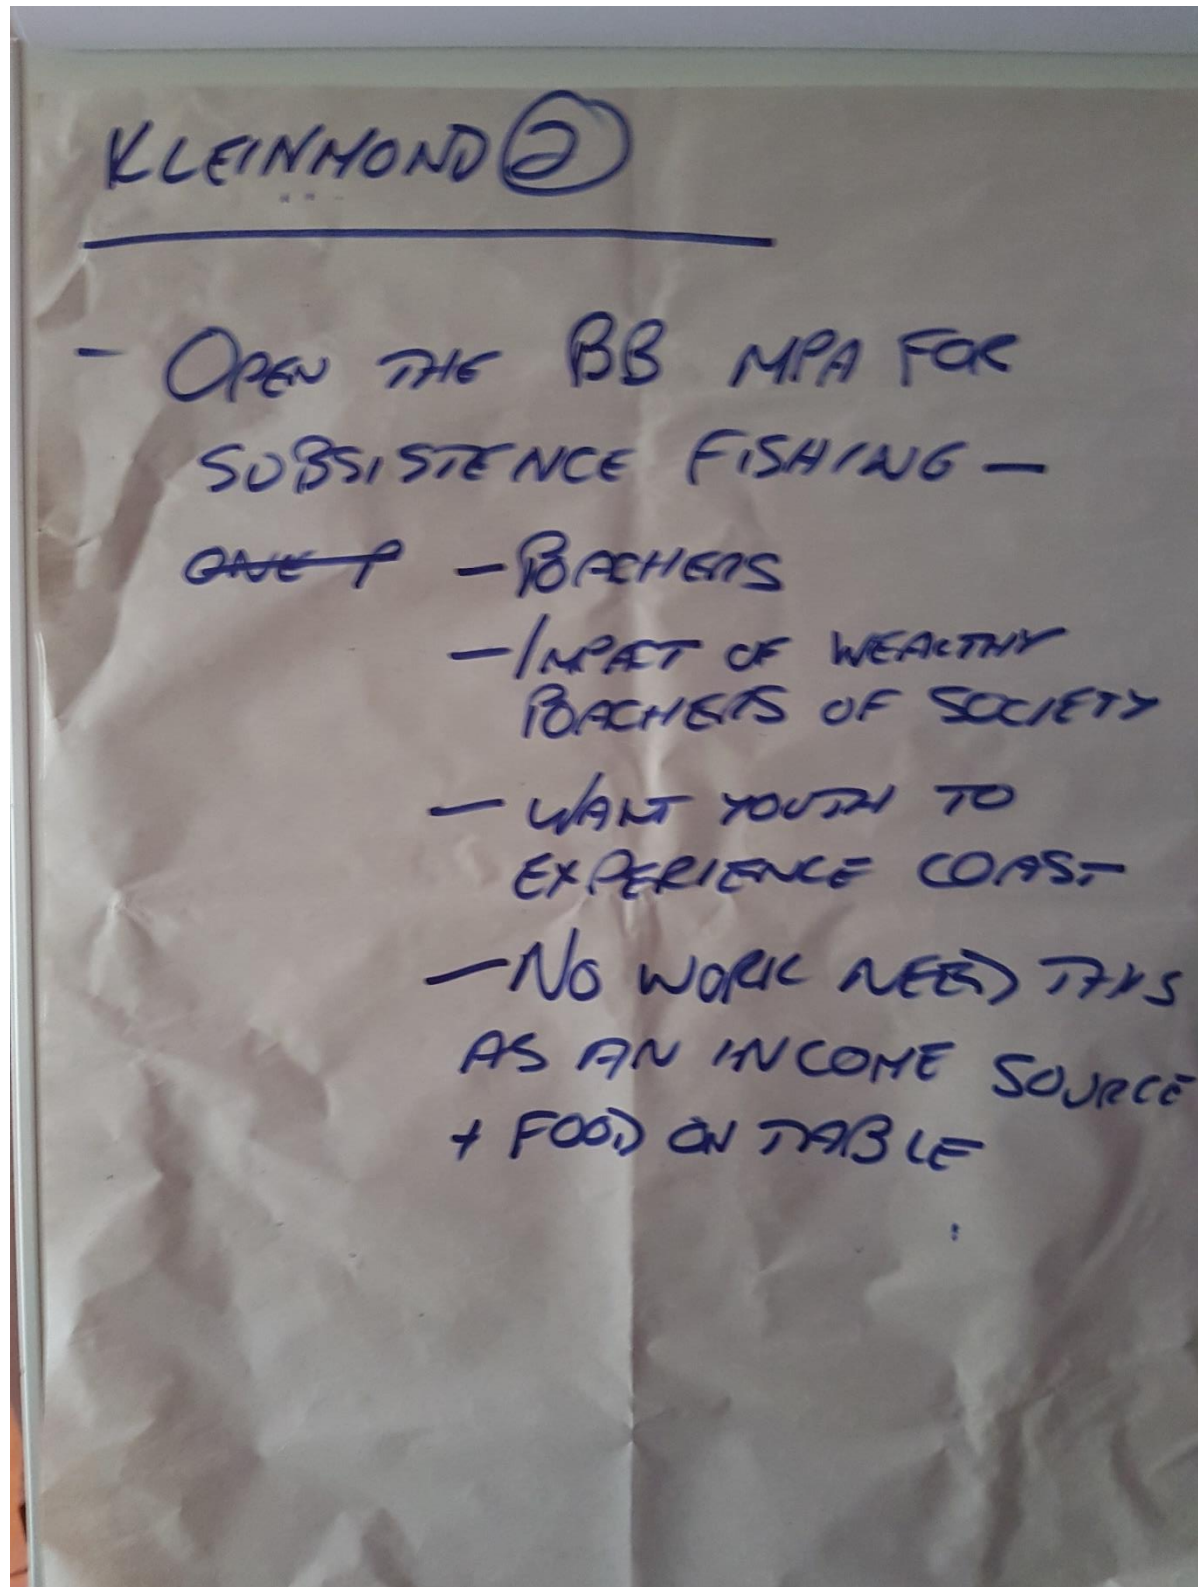 KLEINMOND 2
- OPEN THE BB MPA FOR
SUBSISTENCE FISHING -
ONE P - POACHERS
- IMPACT OF WEALTHY
POACHERS OF SOCIETY
- WANT YOUTH TO
EXPERIENCE COAST
- NO WORK NEED THIS
AS AN INCOME SOURCE
+ FOOD ON TABLE